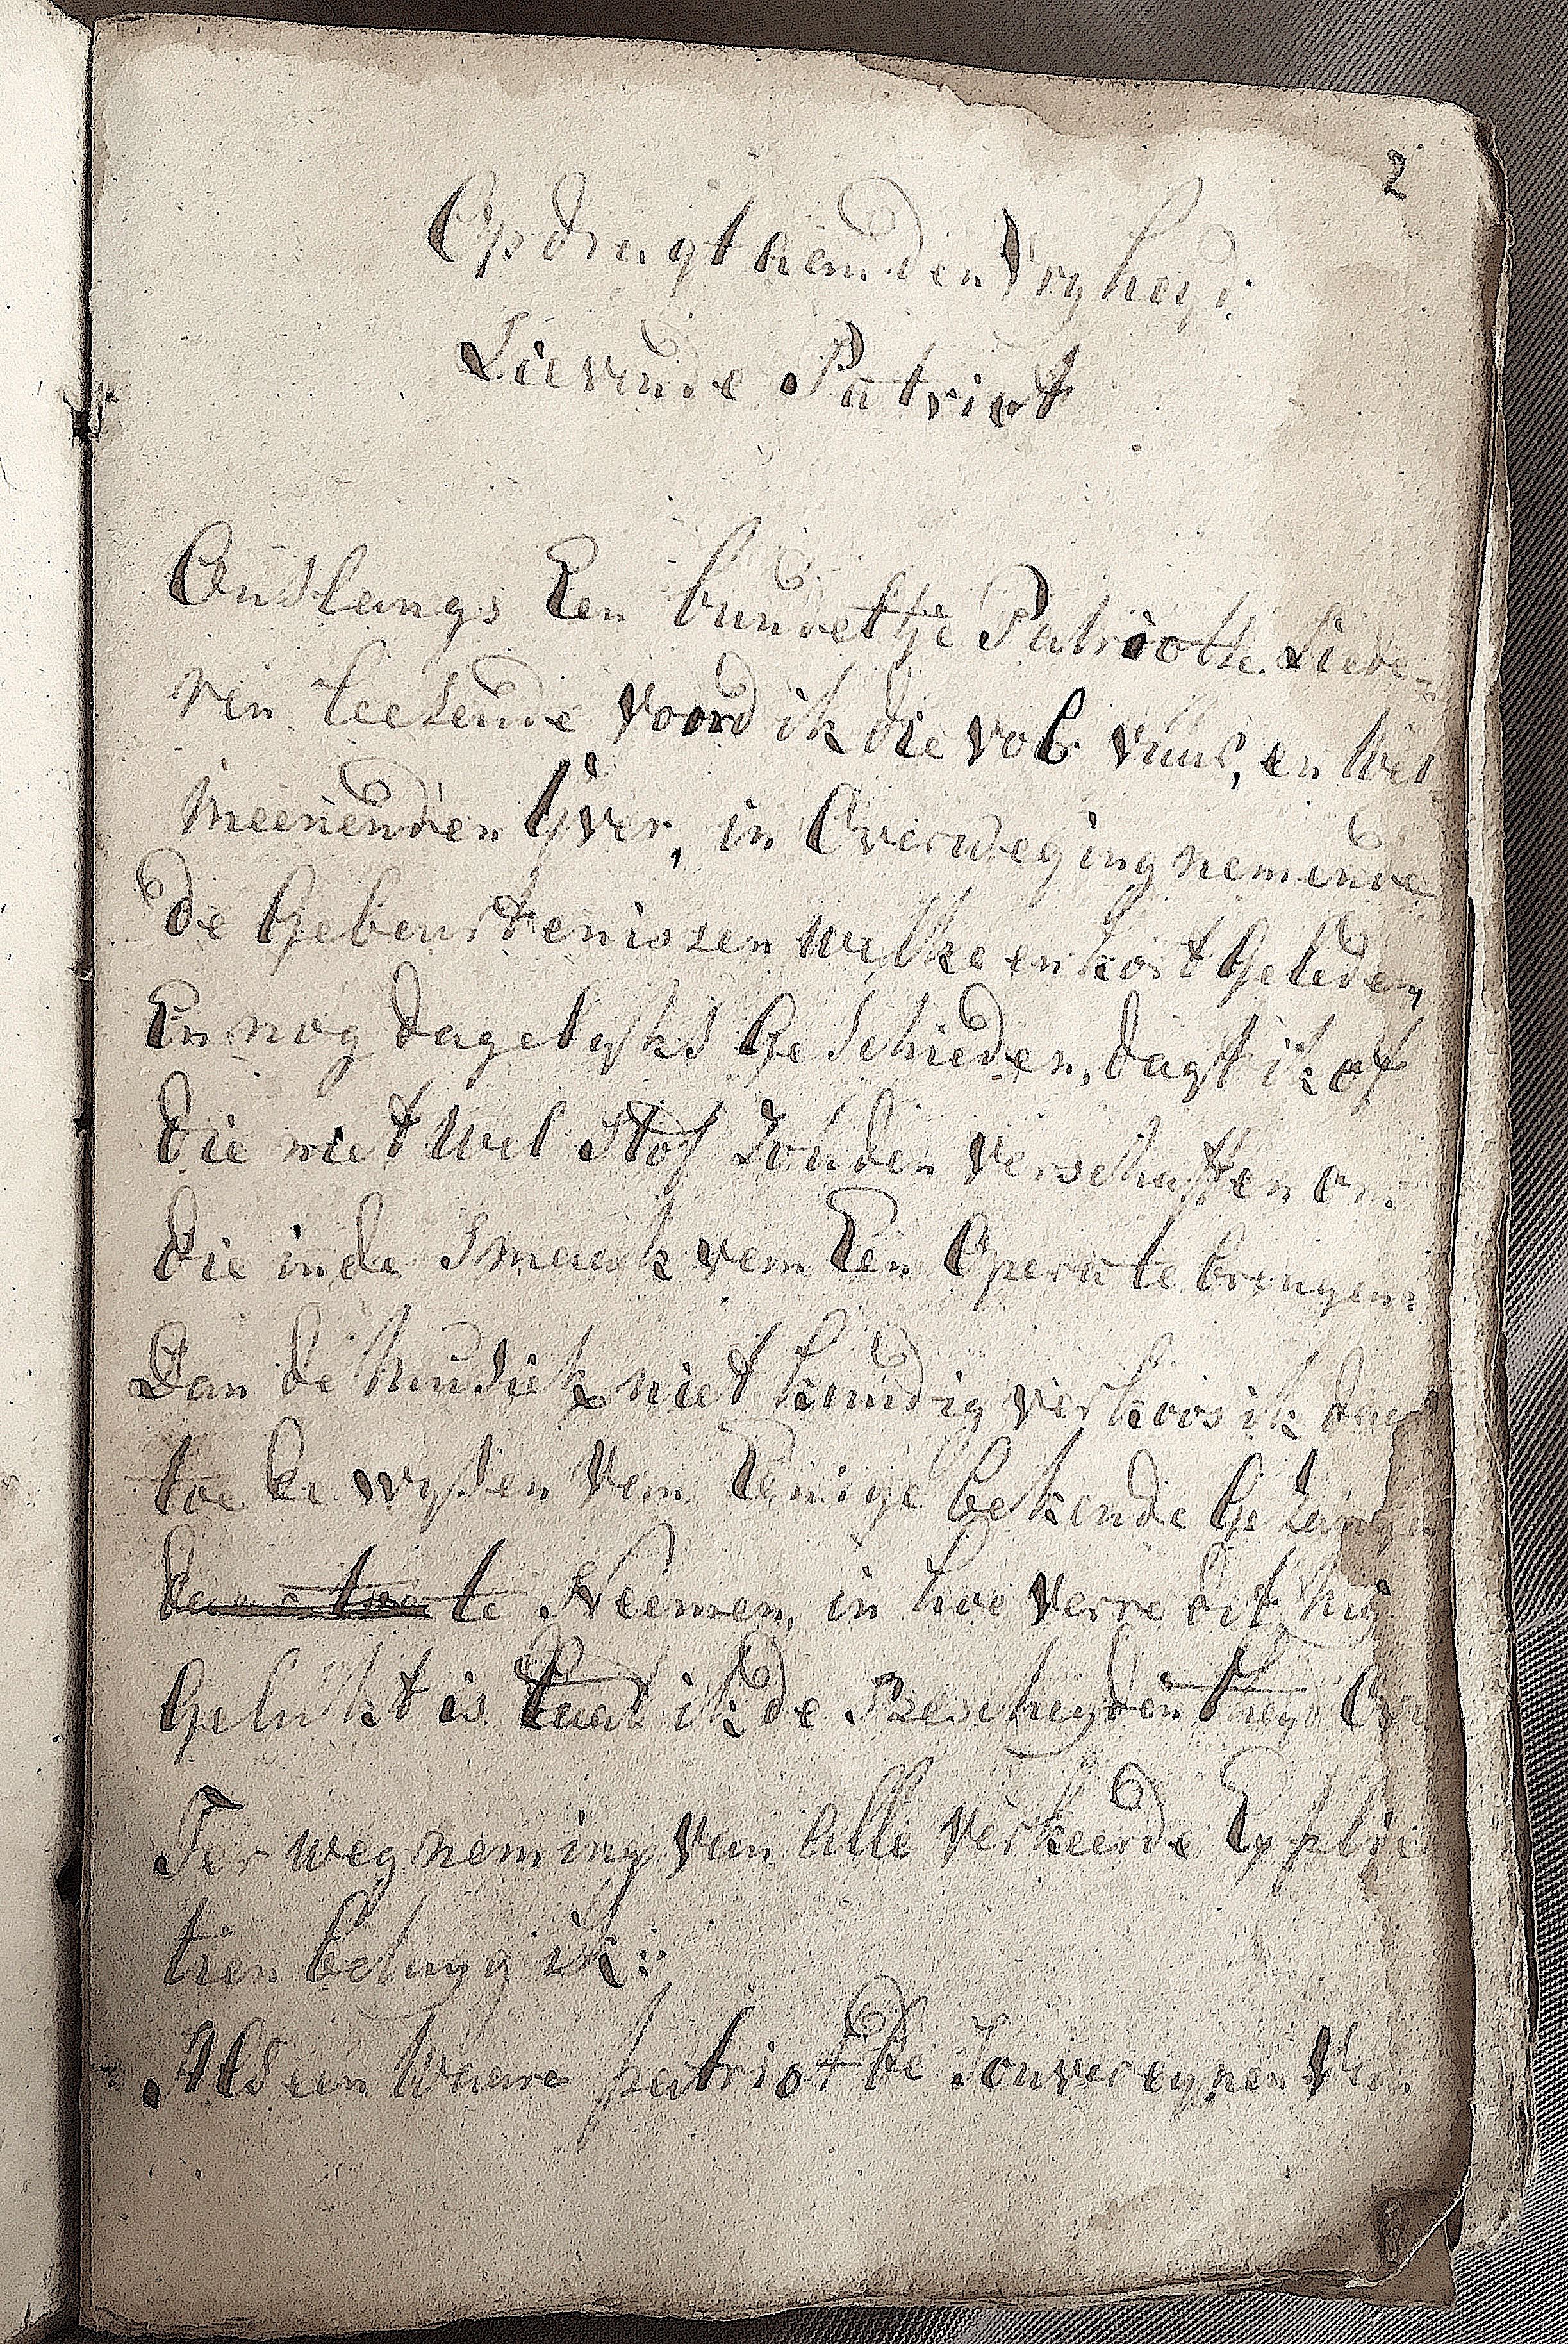 2
Opdragt aan den Vryheyd
Lievende Patriot
Onslangs Een bundeltje Patriotte Liede-
ren leesende voord ik die vol vuur, en Wel
meenenden Yver, in Overweging nemende
de Gebeurtenissen Welke en kort Geleden,
En nog dagelyks Geschieden, dagt ik of
die niet wel Stof Zouden verschaffen om
die in de Smaak van Een Opera te brengen:
Dan de Musiek niet kundig verkoos ik daar
toe de wysen van Eenige bekende Gezangen
daar toe te Neemen, in hoe verre dit My
Gelukt is laat ik de Bescheydentheyd Over
Ter wegneming van alle verkeerde Explica
tien betuyg ik:
Als een Waare patriot de Souvereynen Van